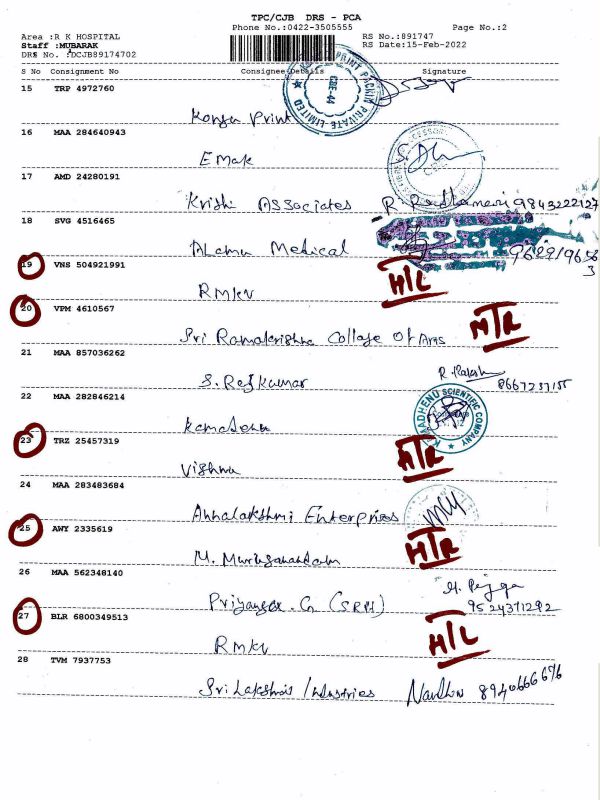 TPC/CJB DRS - PCA
Phone No.:0422-3505555
Page No.:2
Area :R K HOSPITAL
RS No.:891747
Staff :MUBARAK
RS Date:15-Feb-2022
DRS No. :DCJB89174702
S No Consignment No Consignee Details Signature
15 TRP 4972760
Konga Print
16 MAA 284640943
EMak
17 AMD 24280191
Krishi Associates R. Radhamani 9843222127
18 SVG 4516465
Alamu Medical
19 VNS 504921991
RMKV H/L
20 VPM 4610567
Sri Ramakrishna College Of Arts MTR
21 MAA 857036262
S. Rajkumar R. Rakesh
22 MAA 282846214
Kamadenu
23 TRZ 25457319
Vishnu MTR
24 MAA 283483684
Annalakshmi Enterprises
25 AWY 2335619
M. Muruganandam MTR
26 MAA 562348140
Priyanga. G (SRH) 9524371292
27 BLR 6800349513
RMKV H/L
28 TVM 7937753
Sri Lakshmi Industries 8940666676